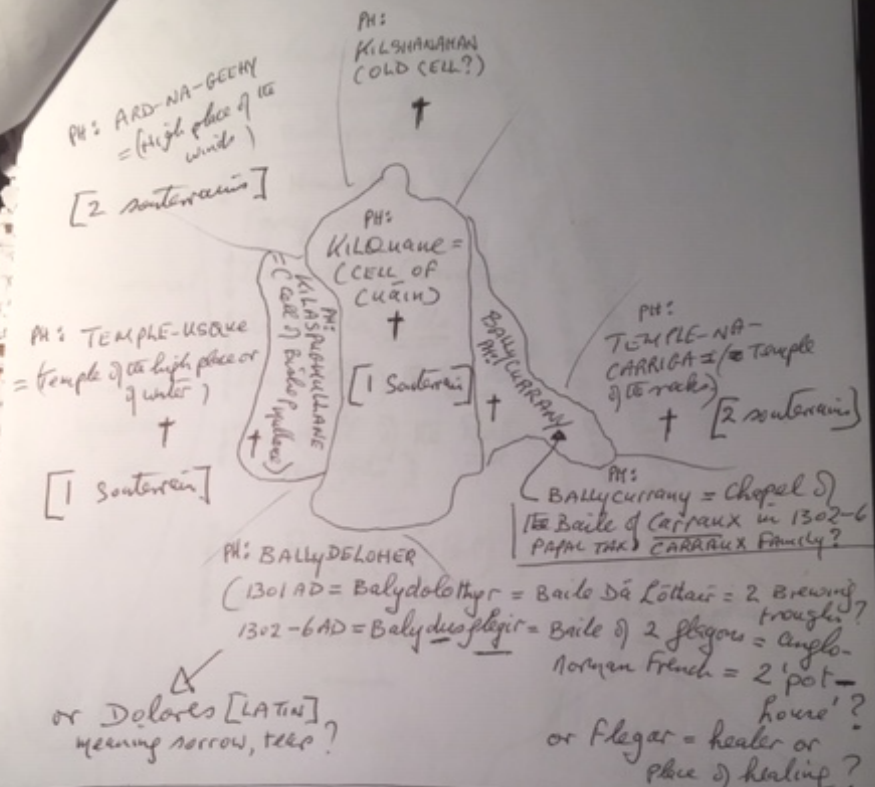 PH:
KILSHANAHAN
(OLD CELL?)
PH: ARD-NA-GEEHY
= (High place of the
winds)
[2 souterrains]
PH:
KILQuane =
(CELL OF
CUÁIN)
[1 Souterrain]
PH:
KILASPUGMULLANE
= (Cell of Bishop
PH: TEMPLE-USQUE
= temple of the high place or
of water)
[1 Souterrain]
BALLYCURRANY
PH:
PH:
TEMPLE-NA-
CARRIGA = (= Temple
of the rocks)
[2 souterrains]
PH:
BALLYCURRANY = Chapel of
the Baile of Carraux in 1302-6
PAPAL TAX) CARRAUX Family?
PH: BALLYDELOHER
(1301AD = Balydolothyr = Baile Dá Lóthair = 2 Brewing
troughs?
1302-6AD = Balydusflegir = Baile of 2 flagons = anglo-
norman French = 2 'pot-
house'?
or Dolores [LATIN]
meaning sorrow, tears?
or Flegar = healer or
place of healing?